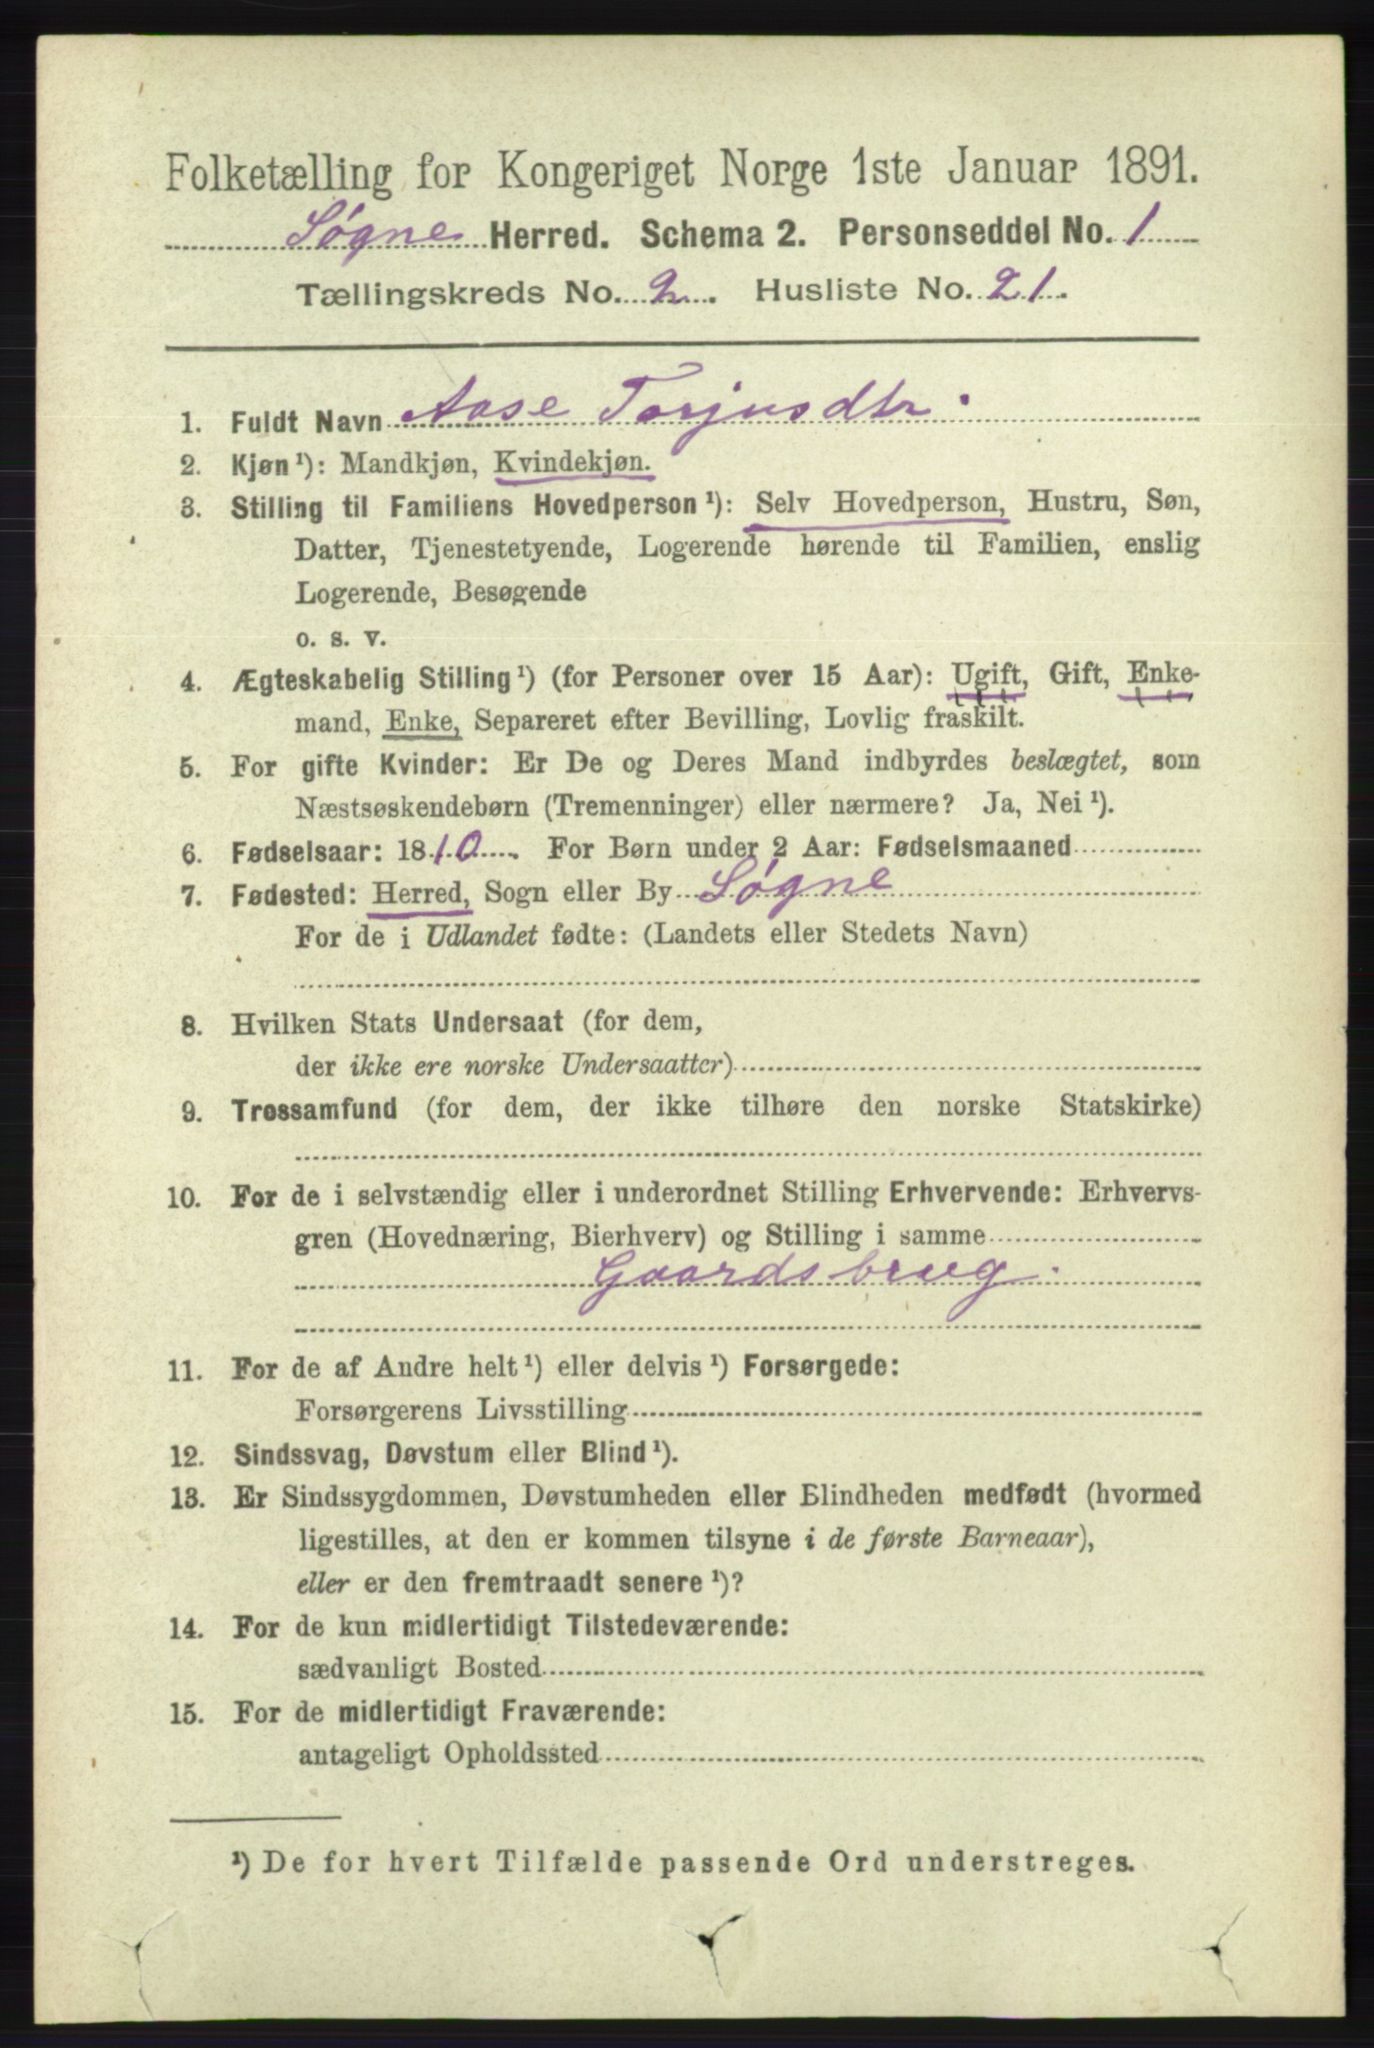 Folketælling for Kongeriget Norge 1ste Januar 1891.
Søgne Herred. Schema 2. Personseddel No. 1
Tællingskreds No. 2. Husliste No. 21.
1. Fuldt Navn Aase Torjusdtr.
2. Kjøn¹): Mandkjøn, Kvindekjøn.
3. Stilling til Familiens Hovedperson¹): Selv Hovedperson, Hustru, Søn,
Datter, Tjenestetyende, Logerende hørende til Familien, enslig
Logerende, Besøgende
o. s. v.
4. Ægteskabelig Stilling¹) (for Personer over 15 Aar): Ugift, Gift, Enke-
mand, Enke, Separeret efter Bevilling, Lovlig fraskilt.
5. For gifte Kvinder: Er De og Deres Mand indbyrdes beslægtet, som
Næstsøskendebørn (Tremenninger) eller nærmere? Ja, Nei¹).
6. Fødselsaar: 1810. For Børn under 2 Aar: Fødselsmaaned
7. Fødested: Herred, Sogn eller By Søgne
For de i Udlandet fødte: (Landets eller Stedets Navn)
8. Hvilken Stats Undersaat (for dem,
der ikke ere norske Undersaatter)
9. Trossamfund (for dem, der ikke tilhøre den norske Statskirke)
10. For de i selvstændig eller i underordnet Stilling Erhvervende: Erhvervs-
gren (Hovednæring, Bierhverv) og Stilling i samme
Gaardsbrug.
11. For de af Andre helt¹) eller delvis¹) Forsørgede:
Forsørgerens Livsstilling
12. Sindssvag, Døvstum eller Blind¹).
13. Er Sindssygdommen, Døvstumheden eller Blindheden medfødt (hvormed
ligestilles, at den er kommen tilsyne i de første Barneaar),
eller er den fremtraadt senere¹)?
14. For de kun midlertidigt Tilstedeværende:
sædvanligt Bosted
15. For de midlertidigt Fraværende:
antageligt Opholdssted
¹) De for hvert Tilfælde passende Ord understreges.